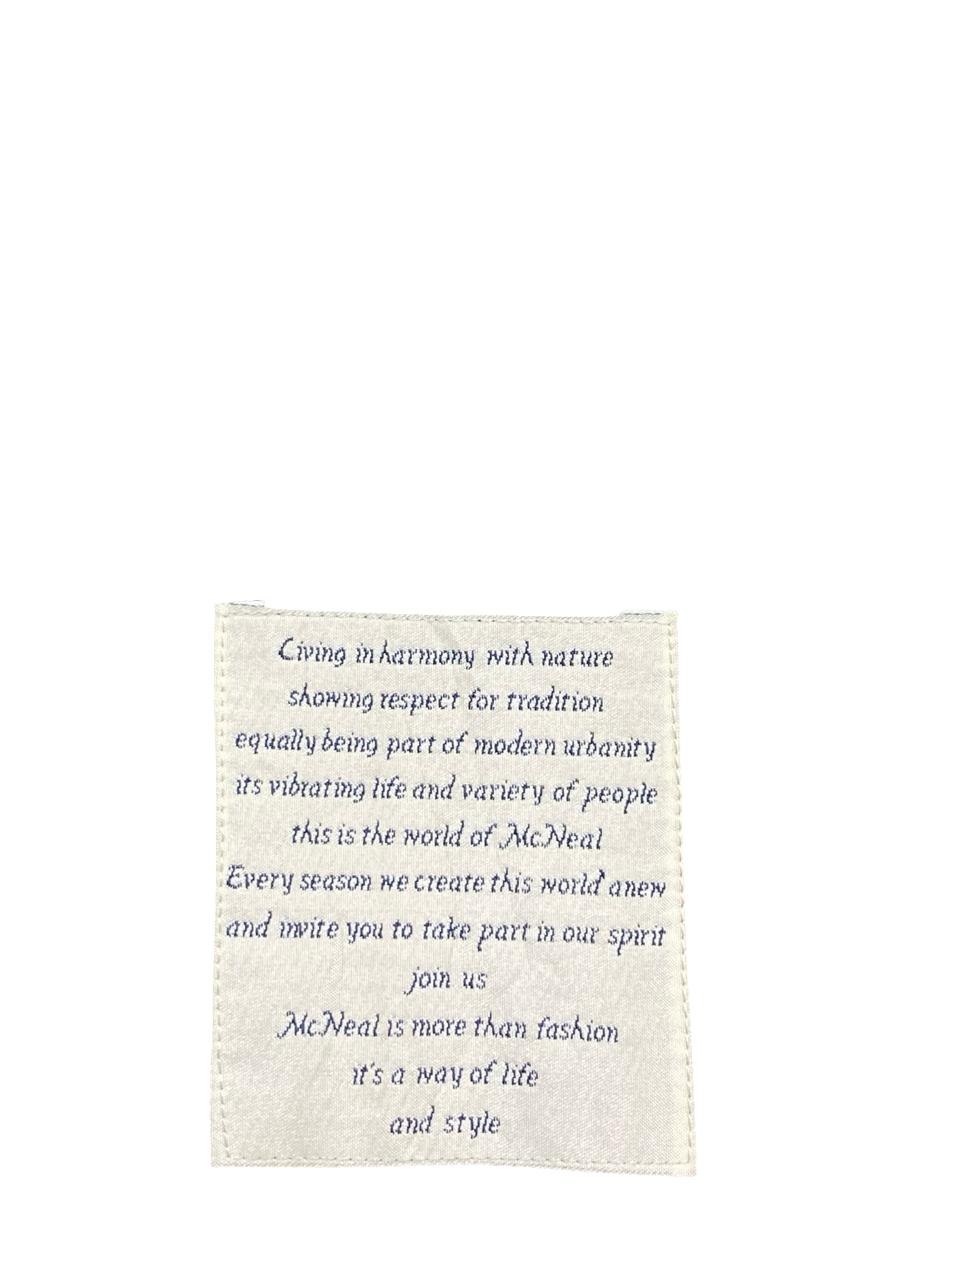 Living in harmony with nature
showing respect for tradition
equally being part of modern urbanity
its vibrating life and variety of people
this is the world of McNeal
Every season we create this world anew
and invite you to take part in our spirit
join us
McNeal is more than fashion
it's a way of life
and style